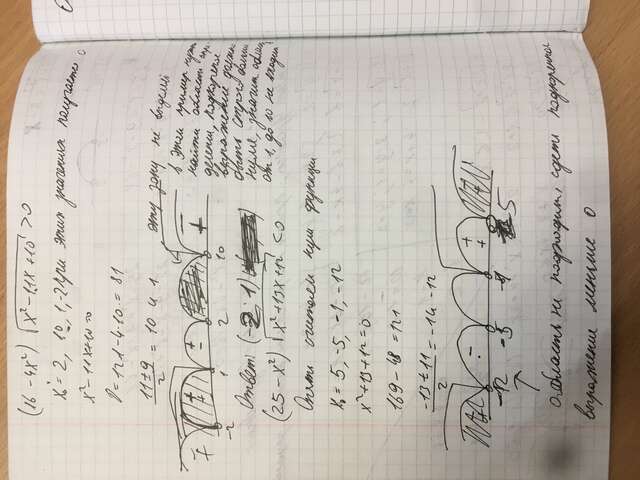 (16 - 4x²) √x² - 11x + 10 > 0
x₀ = 2, 10, 1, -2 При этих значениях получается 0
x² - 11x + 10 = 0
D = 121 - 4·10 = 81
11±9/2 = 10 и 1
эту зону не выделяй
в этом пример нужно
найти область опре
деления, подкорена
выражение должно
быть строго больше
нуля, значит область
от 1, до 10 не входит
-2 1 2 10
Ответ: (-2 ; 1)
(25 - x²) √x² + 13x + 12 < 0
Опять считаем нули функции
x₀ = 5, -5, -1, -12
x² + 13 + 12 = 0
169 - 48 = 121
-13 ± 11/2 = -1 и -12
-12 -5 -1 5
область не подходит, где подкоренное
выражение меньше 0